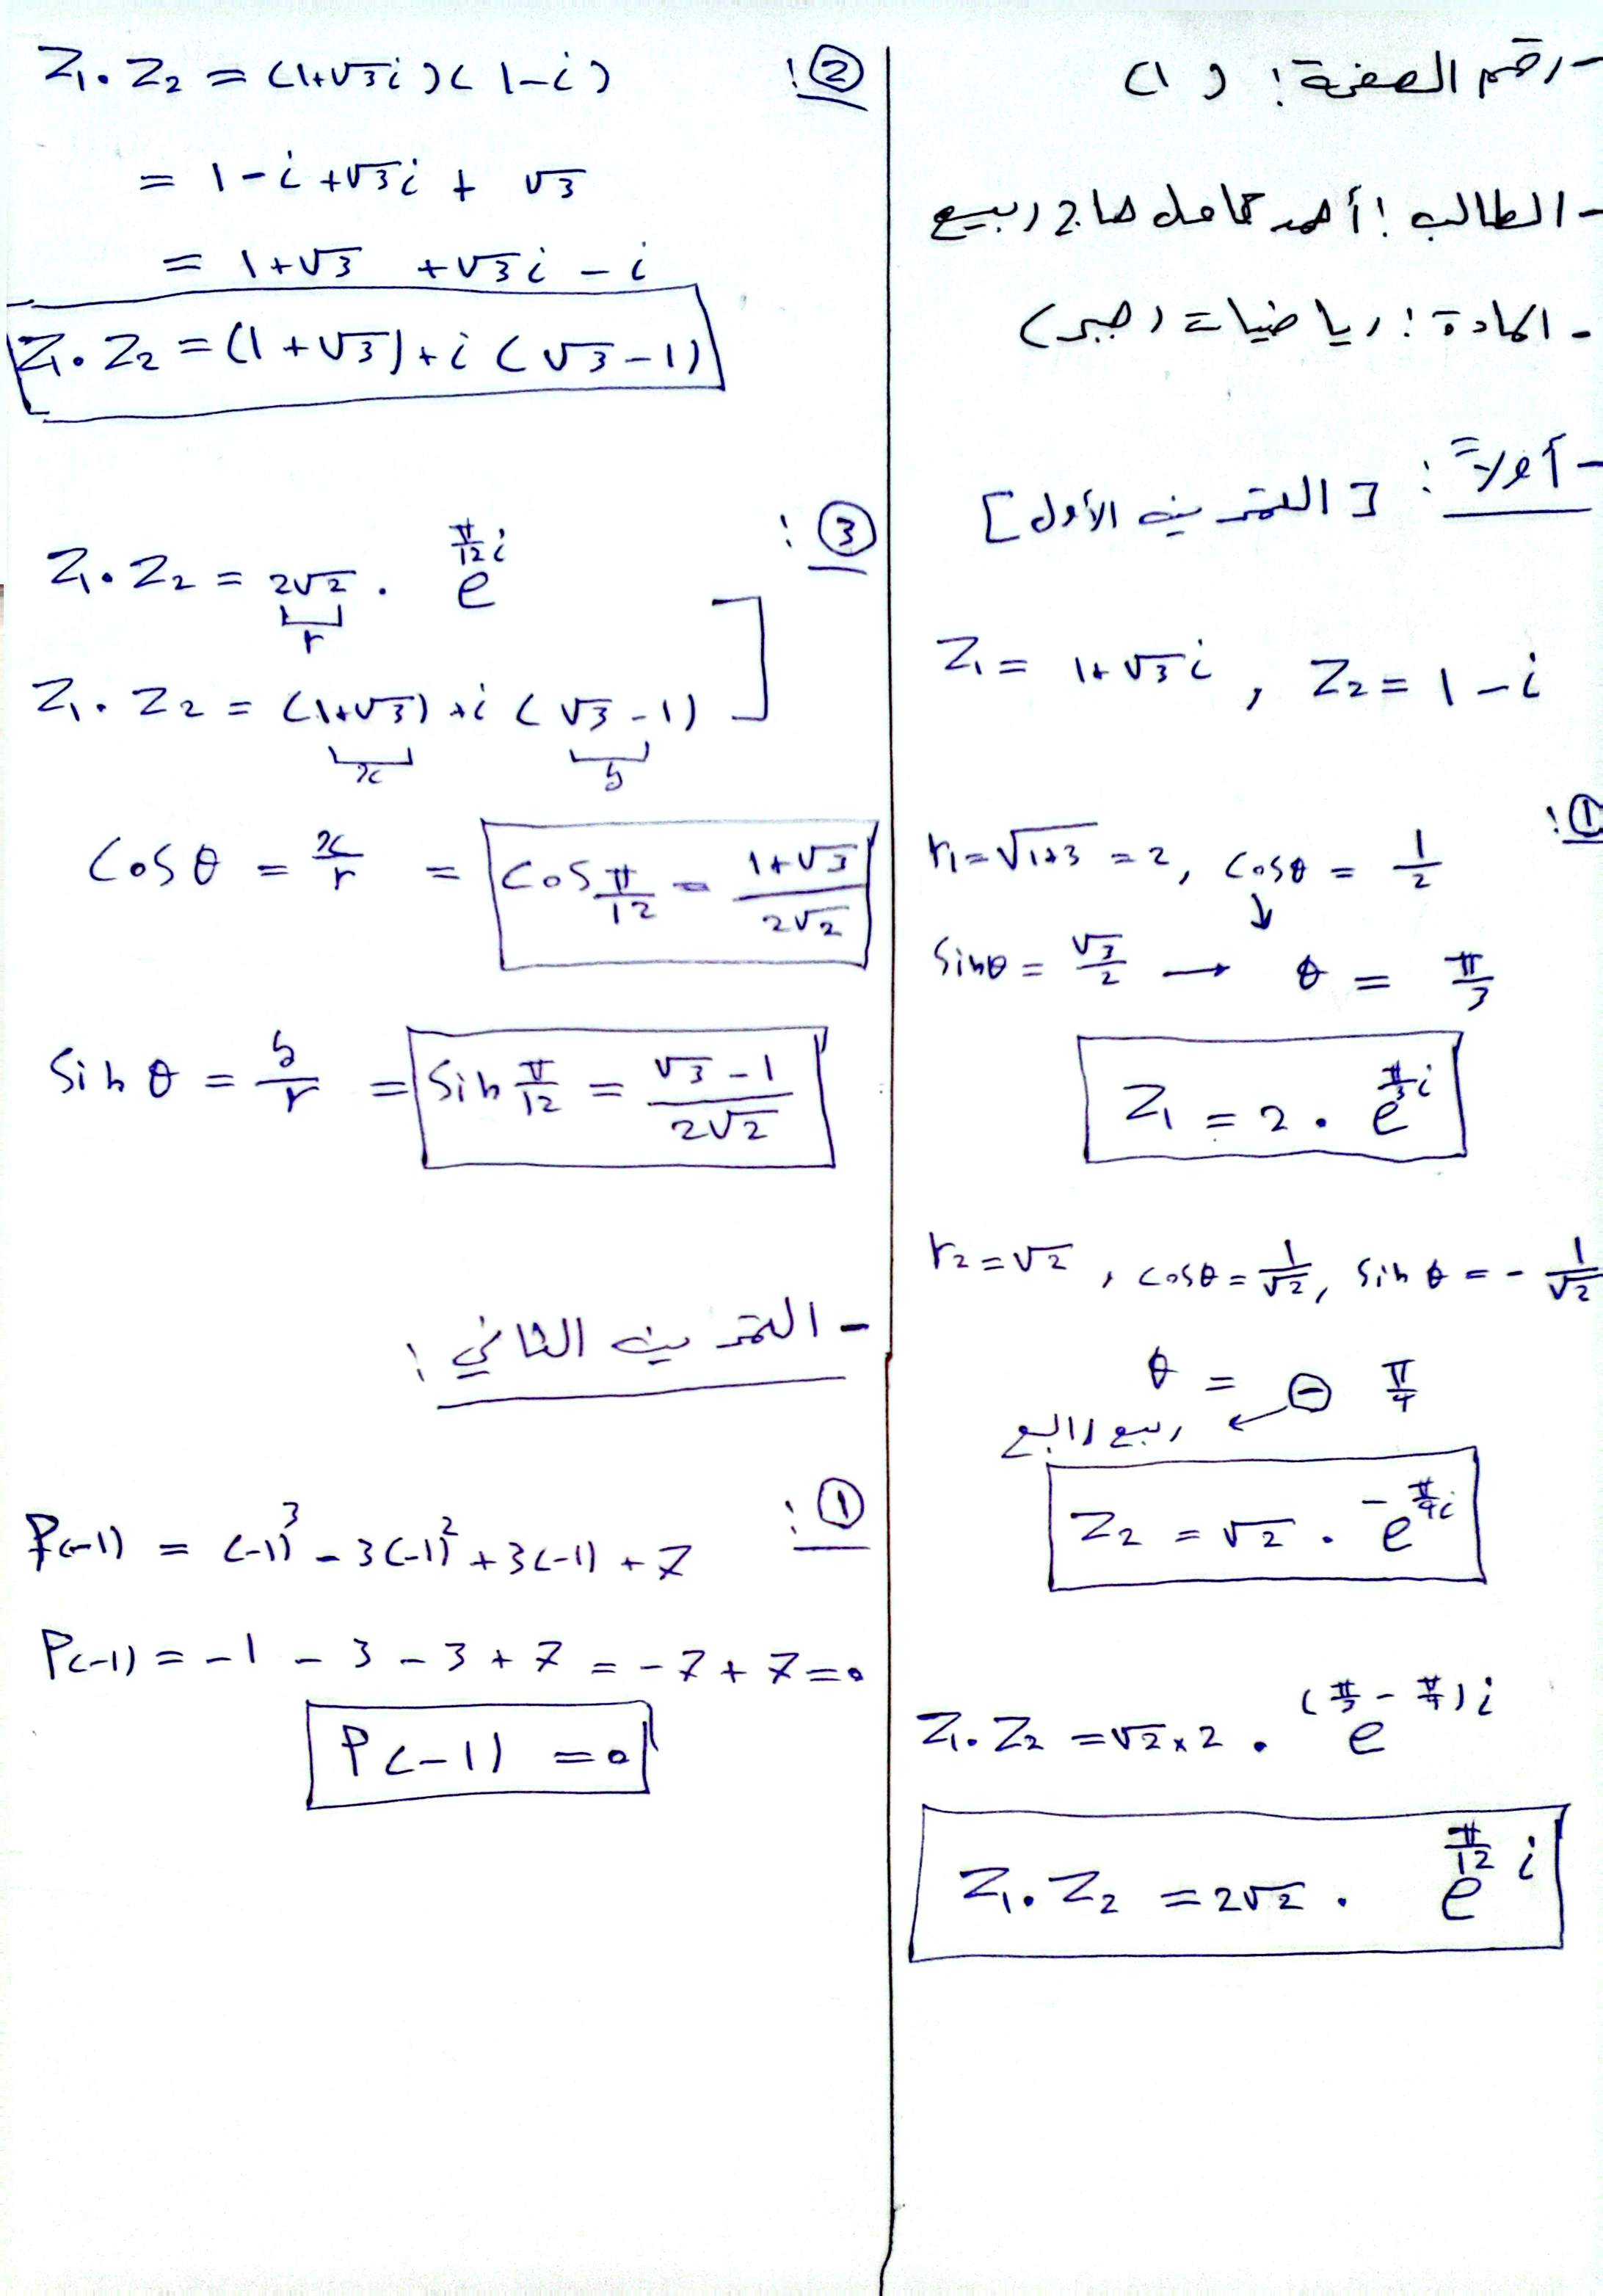 - رقم الصفحة: (1)
- الطالب: أحمد كامل حاج ربيع
- المادة: رياضيات (جبر)
- أولاً: [التمرين الأول]
Z₁ = 1+√3 i , Z₂ = 1 - i
①:
r₁ = √1+3 = 2, cosθ = 1/2
sinθ = √3/2 → θ = π/3
Z₁ = 2 . e^(π/3 i)
r₂ = √2 , cosθ = 1/√2, sinθ = - 1/√2
θ = - π/4
ربع رابع
Z₂ = √2 . e^(-π/4 i)
Z₁.Z₂ = √2 × 2 . e^((π/3 - π/4) i)
Z₁.Z₂ = 2√2 . e^(π/12 i)
②:
Z₁.Z₂ = (1+√3 i)(1-i)
= 1 - i + √3 i + √3
= 1+√3 + √3 i - i
Z₁.Z₂ = (1+√3) + i (√3-1)
③:
Z₁.Z₂ = 2√2 . e^(π/12 i)
r
Z₁.Z₂ = (1+√3) + i (√3-1)
x y
cosθ = x/r = cos π/12 = 1+√3/2√2
sinθ = y/r = sin π/12 = √3-1/2√2
- التمرين الثاني:
①:
P(-1) = (-1)³ - 3(-1)² + 3(-1) + 7
P(-1) = -1 - 3 - 3 + 7 = -7 + 7 = 0
P(-1) = 0